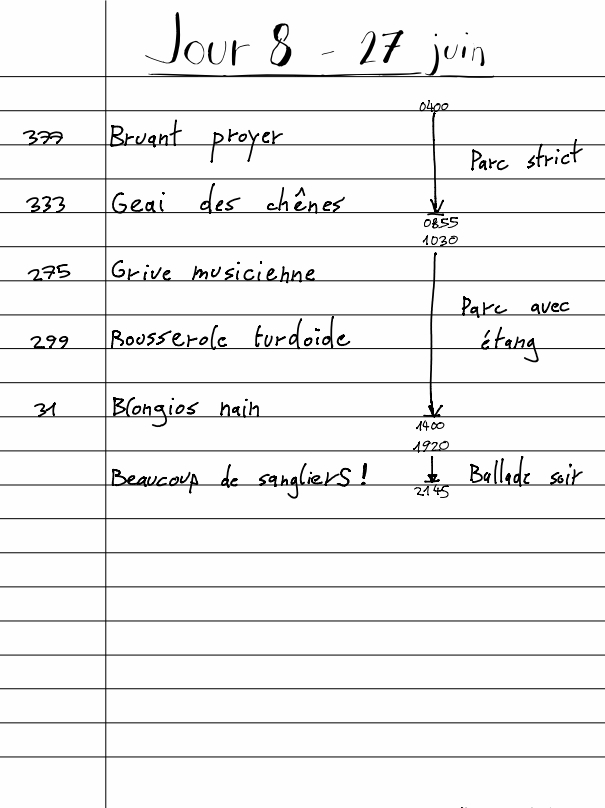 Jour 8 - 27 juin
0400
399 Bruant proyer
Parc strict
333 Geai des chênes
0855
1030
275 Grive musicienne
Parc avec
299 Rousserole turdoïde
étang
31 Blongios nain
1400
1920
Beaucoup de sangliers ! Ballade soir
2145